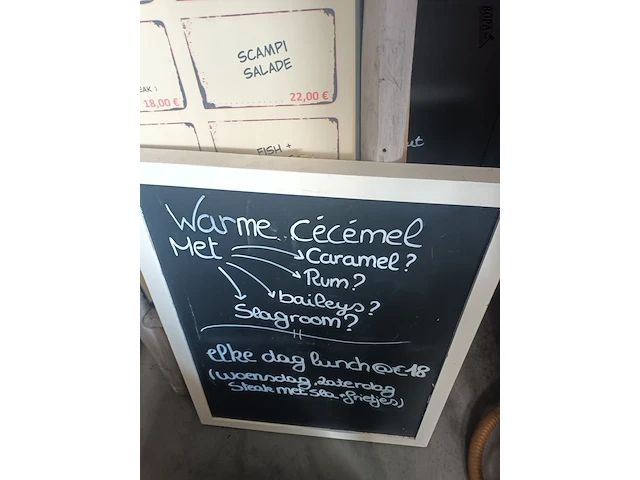 SCAMPI
SALADE
22,00 €
EAK :
18,00 €
FISH +
Warme Cécémel
Met
Caramel?
Rum?
baileys?
Slagroom?
elke dag lunch @ €18
(woensdag, zaterdag
Steak met sla + frietjes)